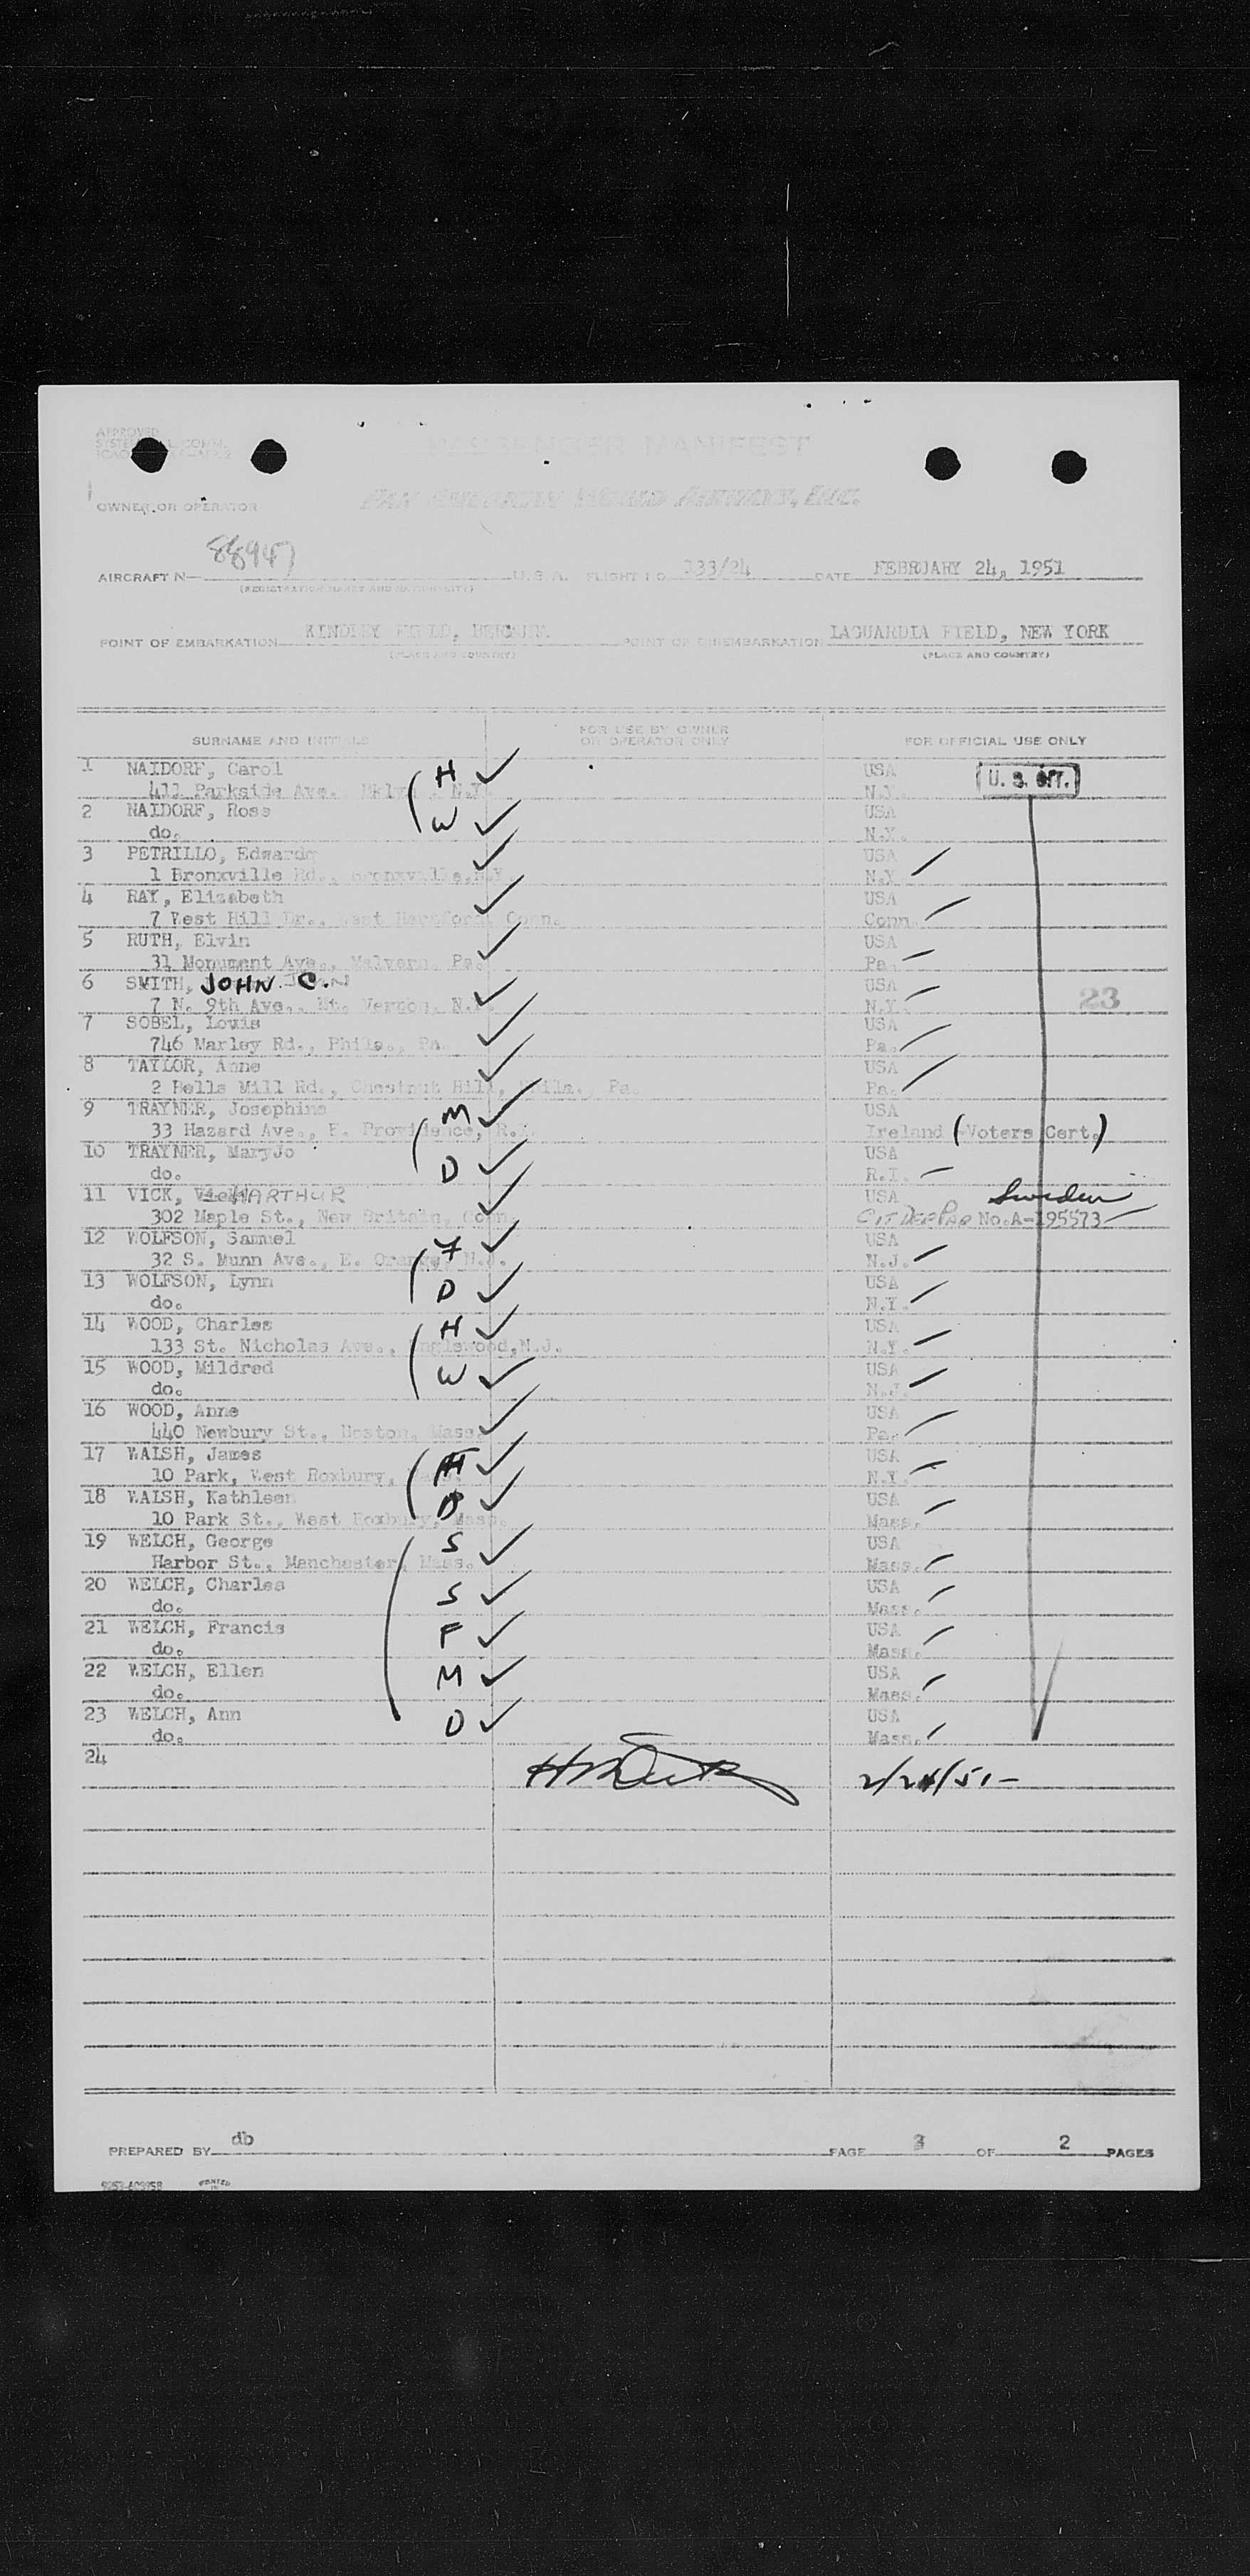 APPROVED
PASSENGER MANIFEST
OWNER OR OPERATOR PAN AMERICAN WORLD AIRWAYS, INC.
AIRCRAFT N— 88947 U.S.A. FLIGHT NO 133/24 DATE FEBRUARY 24, 1951
(REGISTRATION MARKS AND NATIONALITY)
POINT OF EMBARKATION KINDLEY FIELD, BERMUDA POINT OF DISEMBARKATION LAGUARDIA FIELD, NEW YORK
(PLACE AND COUNTRY) (PLACE AND COUNTRY)
SURNAME AND INITIALS FOR USE BY OWNER OR OPERATOR ONLY FOR OFFICIAL USE ONLY
1 NAIDORF, Carol H ✓ USA U. S.
411 Parkside Ave. Bklyn, N.Y. N.Y.
2 NAIDORF, Ross W ✓ USA
do. N.Y.
3 PETRILLO, Edward ✓ USA
1 Bronxville Rd., Bronxville, N.Y. N.Y.
4 RAY, Elizabeth ✓ USA
7 West Hill Dr., West Hartford, Conn. Conn.
5 RUTH, Elvin ✓ USA
31 Monument Ave., Malvern, Pa. Pa.
6 SMITH, JOHN C. ✓ USA
7 N. 9th Ave., Mt. Vernon, N.Y. N.Y. 23
7 SOBEL, Louis ✓ USA
746 Marley Rd., Phila., Pa. Pa.
8 TAYLOR, Anne ✓ USA
2 Bells Mill Rd., Chestnut Hill, Phila. Pa Pa.
9 TRAYNER, Josephine M ✓ USA
33 Hazard Ave., E. Providence, R.I. Ireland (Voters Cert.)
10 TRAYNER, MaryJo D ✓ USA
do. R.I.
11 VICK, ARTHUR ✓ USA Sweden
302 Maple St., New Britain, Conn. CIT DER PAR No. A-195573
12 WOLFSON, Samuel F ✓ USA
32 S. Munn Ave., E. Orange, N.J. N.J.
13 WOLFSON, Lynn D ✓ USA
do. N.Y.
14 WOOD, Charles H ✓ USA
133 St. Nicholas Ave., Englewood, N.J. N.Y.
15 WOOD, Mildred W ✓ USA
do. N.J.
16 WOOD, Anne ✓ USA
440 Newbury St., Boston, Mass. Pa.
17 WALSH, James ✓ USA
10 Park, West Roxbury, Mass. N.Y.
18 WALSH, Kathleen ✓ USA
10 Park St., West Roxbury, Mass. Mass.
19 WELCH, George S ✓ USA
Harbor St., Manchester, Mass. Mass.
20 WELCH, Charles S ✓ USA
do. Mass.
21 WELCH, Francis F ✓ USA
do. Mass.
22 WELCH, Ellen M ✓ USA
do. Mass.
23 WELCH, Ann D ✓ USA
do. Mass.
24 2/24/51-
PREPARED BY db PAGE OF 2 PAGES